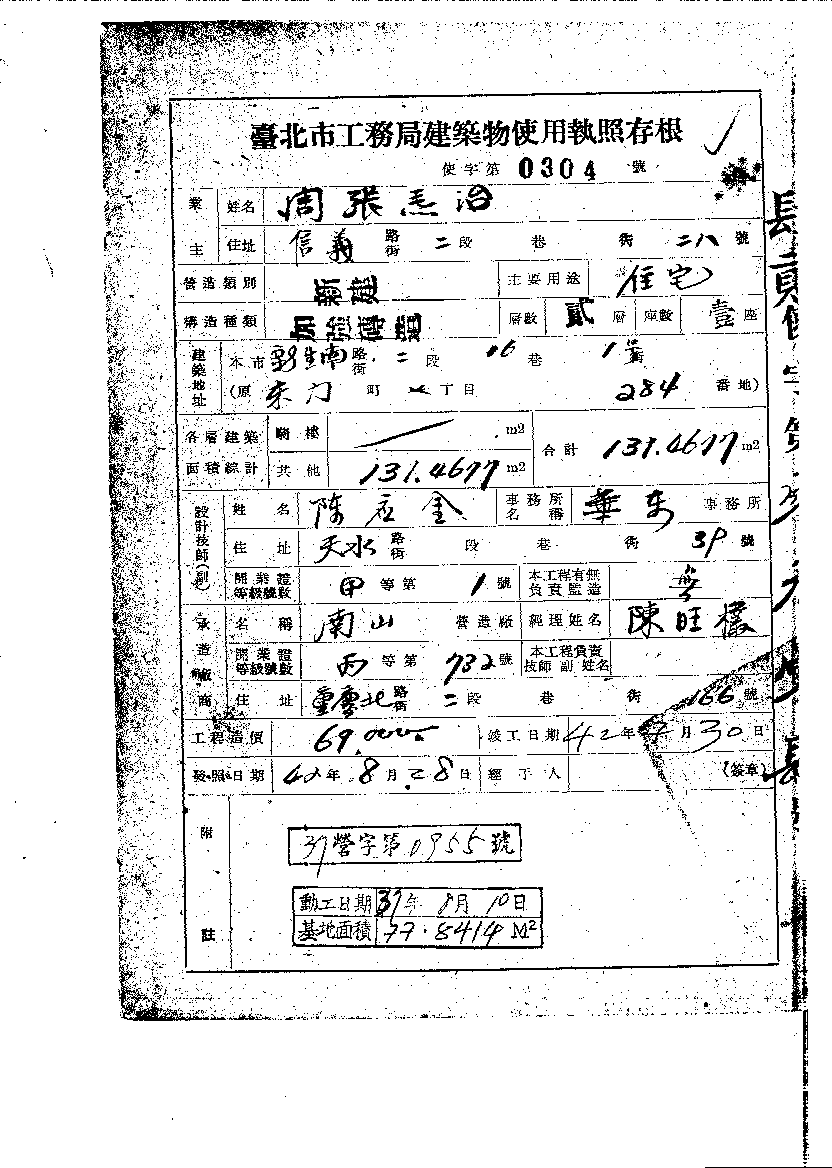 臺北市工務局建築物使用執照存根
使字第 0304 號
業主 姓名 周張
住址 信義 路街 二段 巷 街 二八號
營造類別 新建 主要用途 住宅
構造種類 加強磚造 層數 貳層 座數 壹座
建築地址 本市新生南路街 二段 16巷 1號
(原 東門 町 丁目 284 番地)
各層建築面積綜計 騎樓 m2 合計 131.4677 m2
共他 131.4677 m2
設計技師(副) 姓名 陳 金 事務所名稱 華 事務所
住址 天水 路街 段 巷 街 39 號
開業證等級號數 甲等第 1 號 本工程有無負責監造
承造廠商 名稱 南山 營造廠 經理姓名 陳旺
開業證等級號數 丙等第 732 號 本工程負責技師副姓名
住址 重慶北路街 二段 巷 街 166 號
工程造價 69,000 竣工日期 42年 月30日
發照日期 42年8月28日 經手人 (簽章)
附註
37營字第0955號
動工日期 37年8月10日
基地面積 77.8414 M²